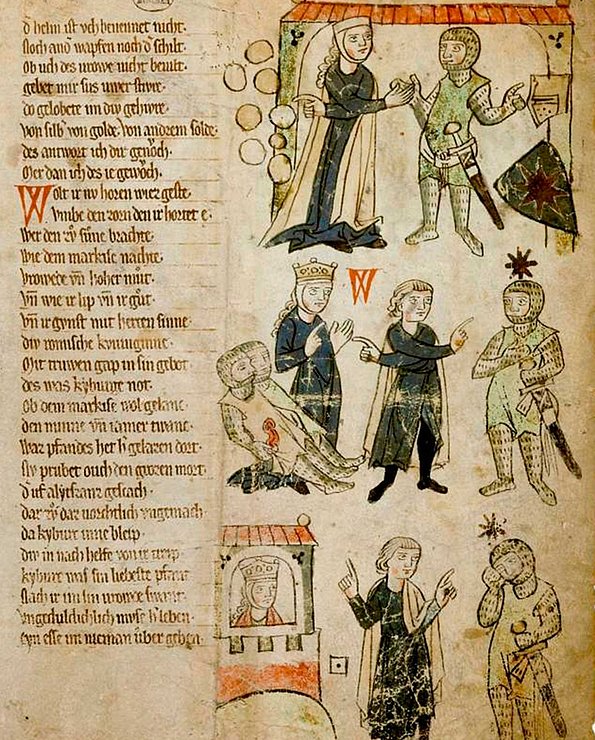 d helm ist vch benennet nicht·
Noch and wapfen noch d schilt·
Ob uch des vrowe nicht beuilt·
gebet mir sus uwer stivre·
do gelobete im div gehivre·
Von silb von golde· Von andrem solde·
des antwort ich dir genvͦch·
Mer dan ich des ie gewvͦch·
Wolt ir nv horen wiez geste·
Vmbe den zorn den ir hortet e·
Wer den zv svne brachte·
Wie dem markise nachte·
Vrowede vn̄ hoher mvͦt·
Vn̄ wie ir lip vn̄ ir gvͦt·
Vn̄ ir gvnst mit herzen sinne·
div romische kvniginne·
Mit truwen gap in sin gebot·
des was kyburge not·
Ob dem markise wol gelanc·
den minne vn̄ iamer twanc·
War pfandes het h gelazen dort·
Siv prubet ouch den grozen mort
d uf alyscanz geschach·
dar zv dar vorchtlich vngemach·
da kyburc inne bleip·
div in nach helfe von ir treip·
kyburc was sin liebeste pfant
Nach ir im sin vrowde swant·
vngeduldichlich mvse h leben·
im nieman über geben·
W